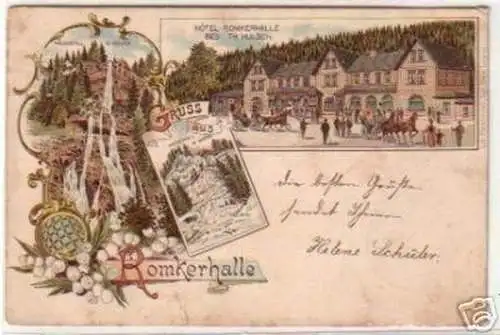 HÔTEL ROMKERHALLE
BES. TH. HULSCH
Gruss
aus
Romkerhalle
Die besten Grüße
sendet Ihnen
Helene Schüler.